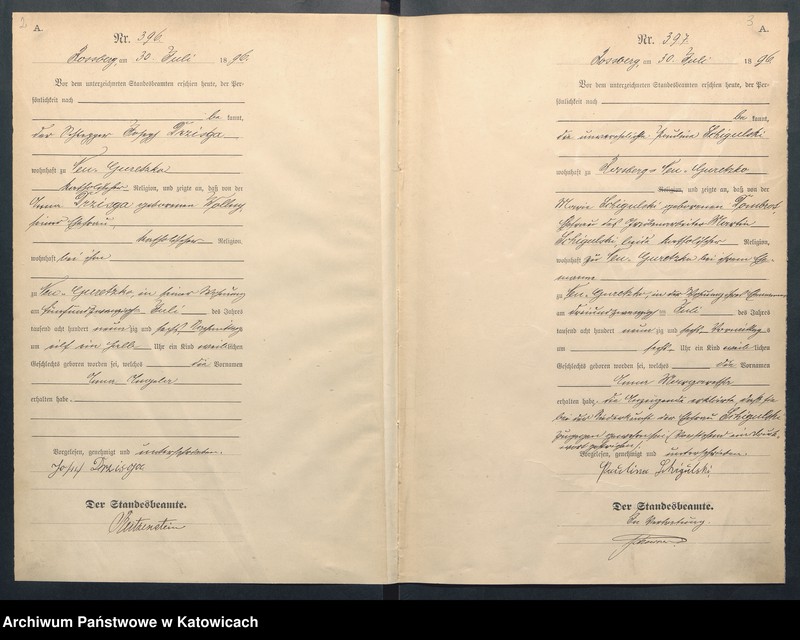 2.
A.
Nr. 396.
Rossberg, am 30. Juli 1896.
Vor dem unterzeichneten Standesbeamten erschien heute, der Per-
sönlichkeit nach
be kannt,
der Schlepper Josef Drzisga
wohnhaft zu Neu-Guretzko
katholischer Religion, und zeigte an, daß von der
Anna Drzisga geborenen
seiner Ehefrau,
katholischer Religion,
wohnhaft bei ihm
zu Neu-Guretzko, in seiner Wohnung
am fünfundzwanzigsten Juli des Jahres
tausend acht hundert neunzig und sechs Vormittags
um elf ein halb Uhr ein Kind weiblichen
Geschlechts geboren worden sei, welches die Vornamen
Anna
erhalten habe.
Vorgelesen, genehmigt und unterschrieben.
Josef Drzisga
Der Standesbeamte.
3
A.
Nr. 397.
Rossberg, am 30. Juli 1896
Vor dem unterzeichneten Standesbeamten erschien heute, der Per-
sönlichkeit nach
be kannt,
die unverehelichte Paulina Schigulski
wohnhaft zu Rossberg-Neu-Guretzko
Religion, und zeigte an, daß von der
Marie Schigulski geborenen
Ehefrau des Grubenarbeiters Martin
Schigulski, katholischer Religion,
wohnhaft zu Neu-Guretzko bei ihrem Ehe-
manne
zu Neu-Guretzko, in der Wohnung ihres Ehemannes
am dreiundzwanzigsten Juli des Jahres
tausend acht hundert neunzig und sechs Vormittags
um sechs Uhr ein Kind weiblichen
Geschlechts geboren worden sei, welches die Vornamen
Anna Margarethe
erhalten habe. Die Anzeigende erklärte, daß sie
bei der Niederkunft der Ehefrau Schigulski
zugegen gewesen sei. (Vorstehend ein Druck-
wort gestrichen).
Vorgelesen, genehmigt und unterschrieben.
Paulina Schigulski
Der Standesbeamte.
In Vertretung.
Archiwum Państwowe w Katowicach